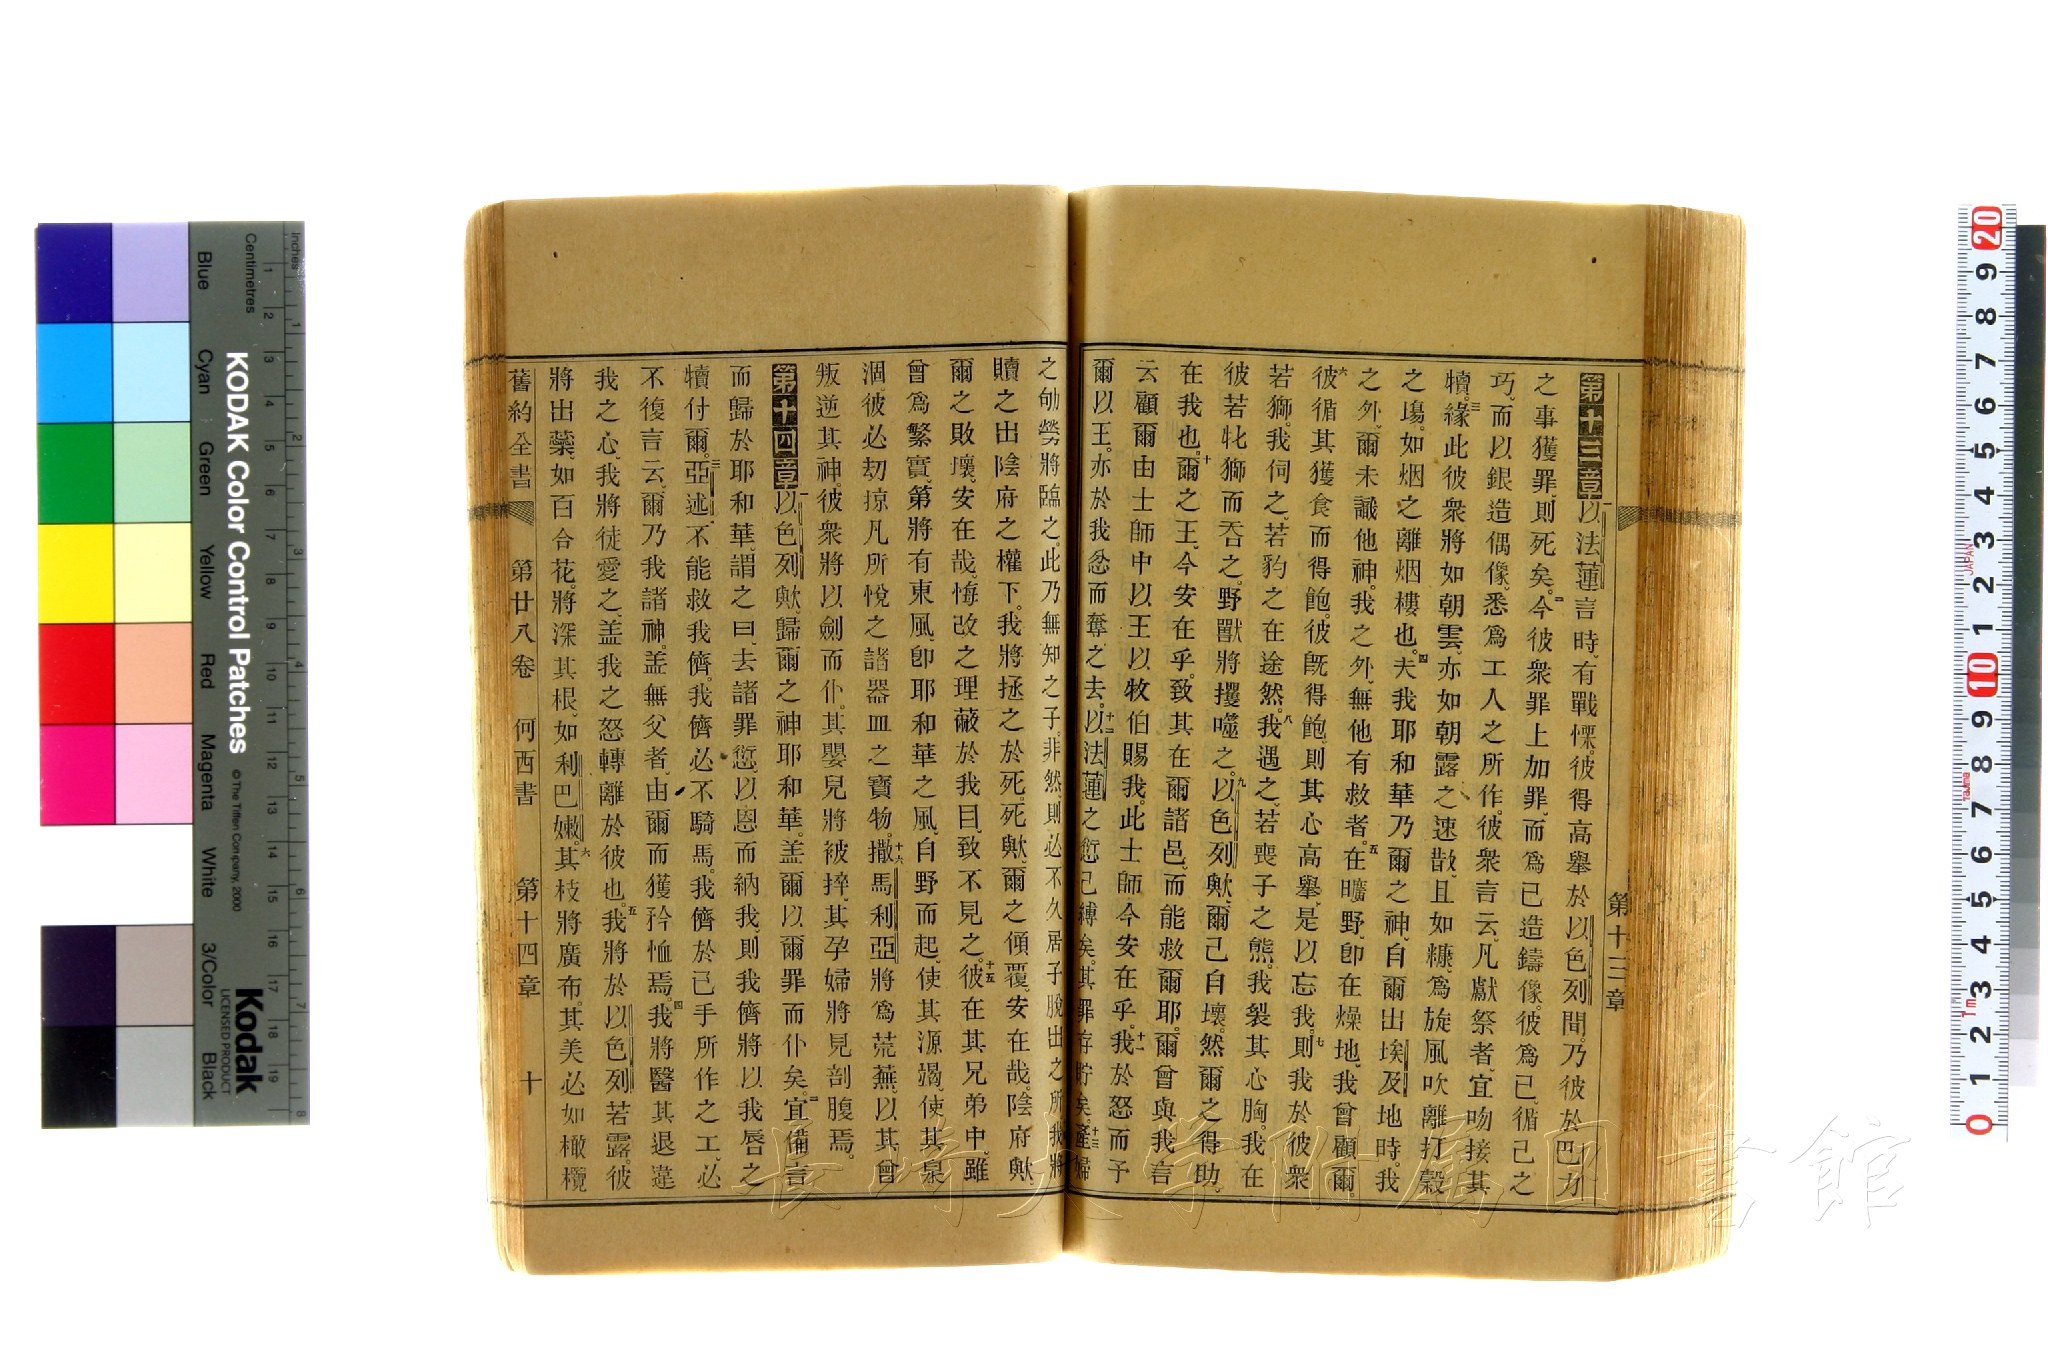 第十三章
第十三章一以法蓮言時、有戰慄。彼得高舉於以色列間。乃彼於巴力
之事獲罪、則死矣。二今彼衆罪上加罪、而爲己造鑄像。彼爲己、循己之
巧、而以銀造偶像、悉爲工人之所作。彼衆言云、凡獻祭者、宜吻接其
犢。三緣此彼衆將如朝雲、亦如朝露之速散、且如糠、爲旋風吹離打穀
之塲。如烟之離烟樓也。四夫我耶和華乃爾之神、自爾出埃及地時。我
之外、爾未識他神。我之外、無他有救者。五在曠野、卽在燥地、我曾顧爾。
六彼循其獲食而得飽。彼旣得飽、則其心高舉、是以忘我。七則我於彼衆
若獅。我伺之、若豹之在途然。八我遇之、若喪子之熊。我裂其心胸。我在
彼若牝獅而吞之。野獸將攫噬之。九以色列歟、爾己自壞。然爾之得助、
在我也。十爾之王、今安在乎。致其在爾諸邑、而能救爾耶。爾曾與我言
云、顧爾由士師中以王以牧伯賜我。此士師今安在乎。十一我於怒而予
爾以王。亦於我忿而奪之去。十二以法蓮之愆已縛矣。其罪存貯矣。十三產婦
之劬勞將臨之。此乃無知之子。非然、則必不久居子脫出之所。我將
贖之出陰府之權下。我將拯之於死。死歟、爾之傾覆、安在哉。陰府歟、
爾之敗壞、安在哉。悔改之理蔽於我目、致不見之。十五彼在其兄弟中、雖
曾爲繁實、第將有東風、卽耶和華之風、自野而起、使其源竭、使其泉
涸。彼必刧掠凡所悅之諸器皿之寶物。十六撒馬利亞將爲荒蕪、以其曾
叛逆其神。彼衆將以劍而仆。其嬰兒將被摔、其孕婦將見剖腹焉。
第十四章一以色列歟、歸爾之神耶和華。盖爾以爾罪而仆矣。二宜備言
而歸於耶和華、謂之曰、去諸罪愆、以恩而納我、則我儕將以我唇之
犢付爾。三亞述不能救我儕。我儕必不騎馬。我儕於己手所作之工、必
不復言云、爾乃我諸神。盖無父者、由爾而獲矜恤焉。四我將醫其退違
我之心、我將徒愛之、盖我之怒轉離於彼也。五我將於以色列若露。彼
將出蘂、如百合花、將深其根、如利巴嫩。六其枝將廣布。其美必如橄欖
舊約全書　第廿八卷　何西書　第十四章　十
長崎大学附属図書館
KODAK Color Control Patches
© The Tiffen Company, 2000
Kodak
LICENSED PRODUCT
Inches
Centimetres
Blue
Cyan
Green
Yellow
Red
Magenta
White
3/Color
Black